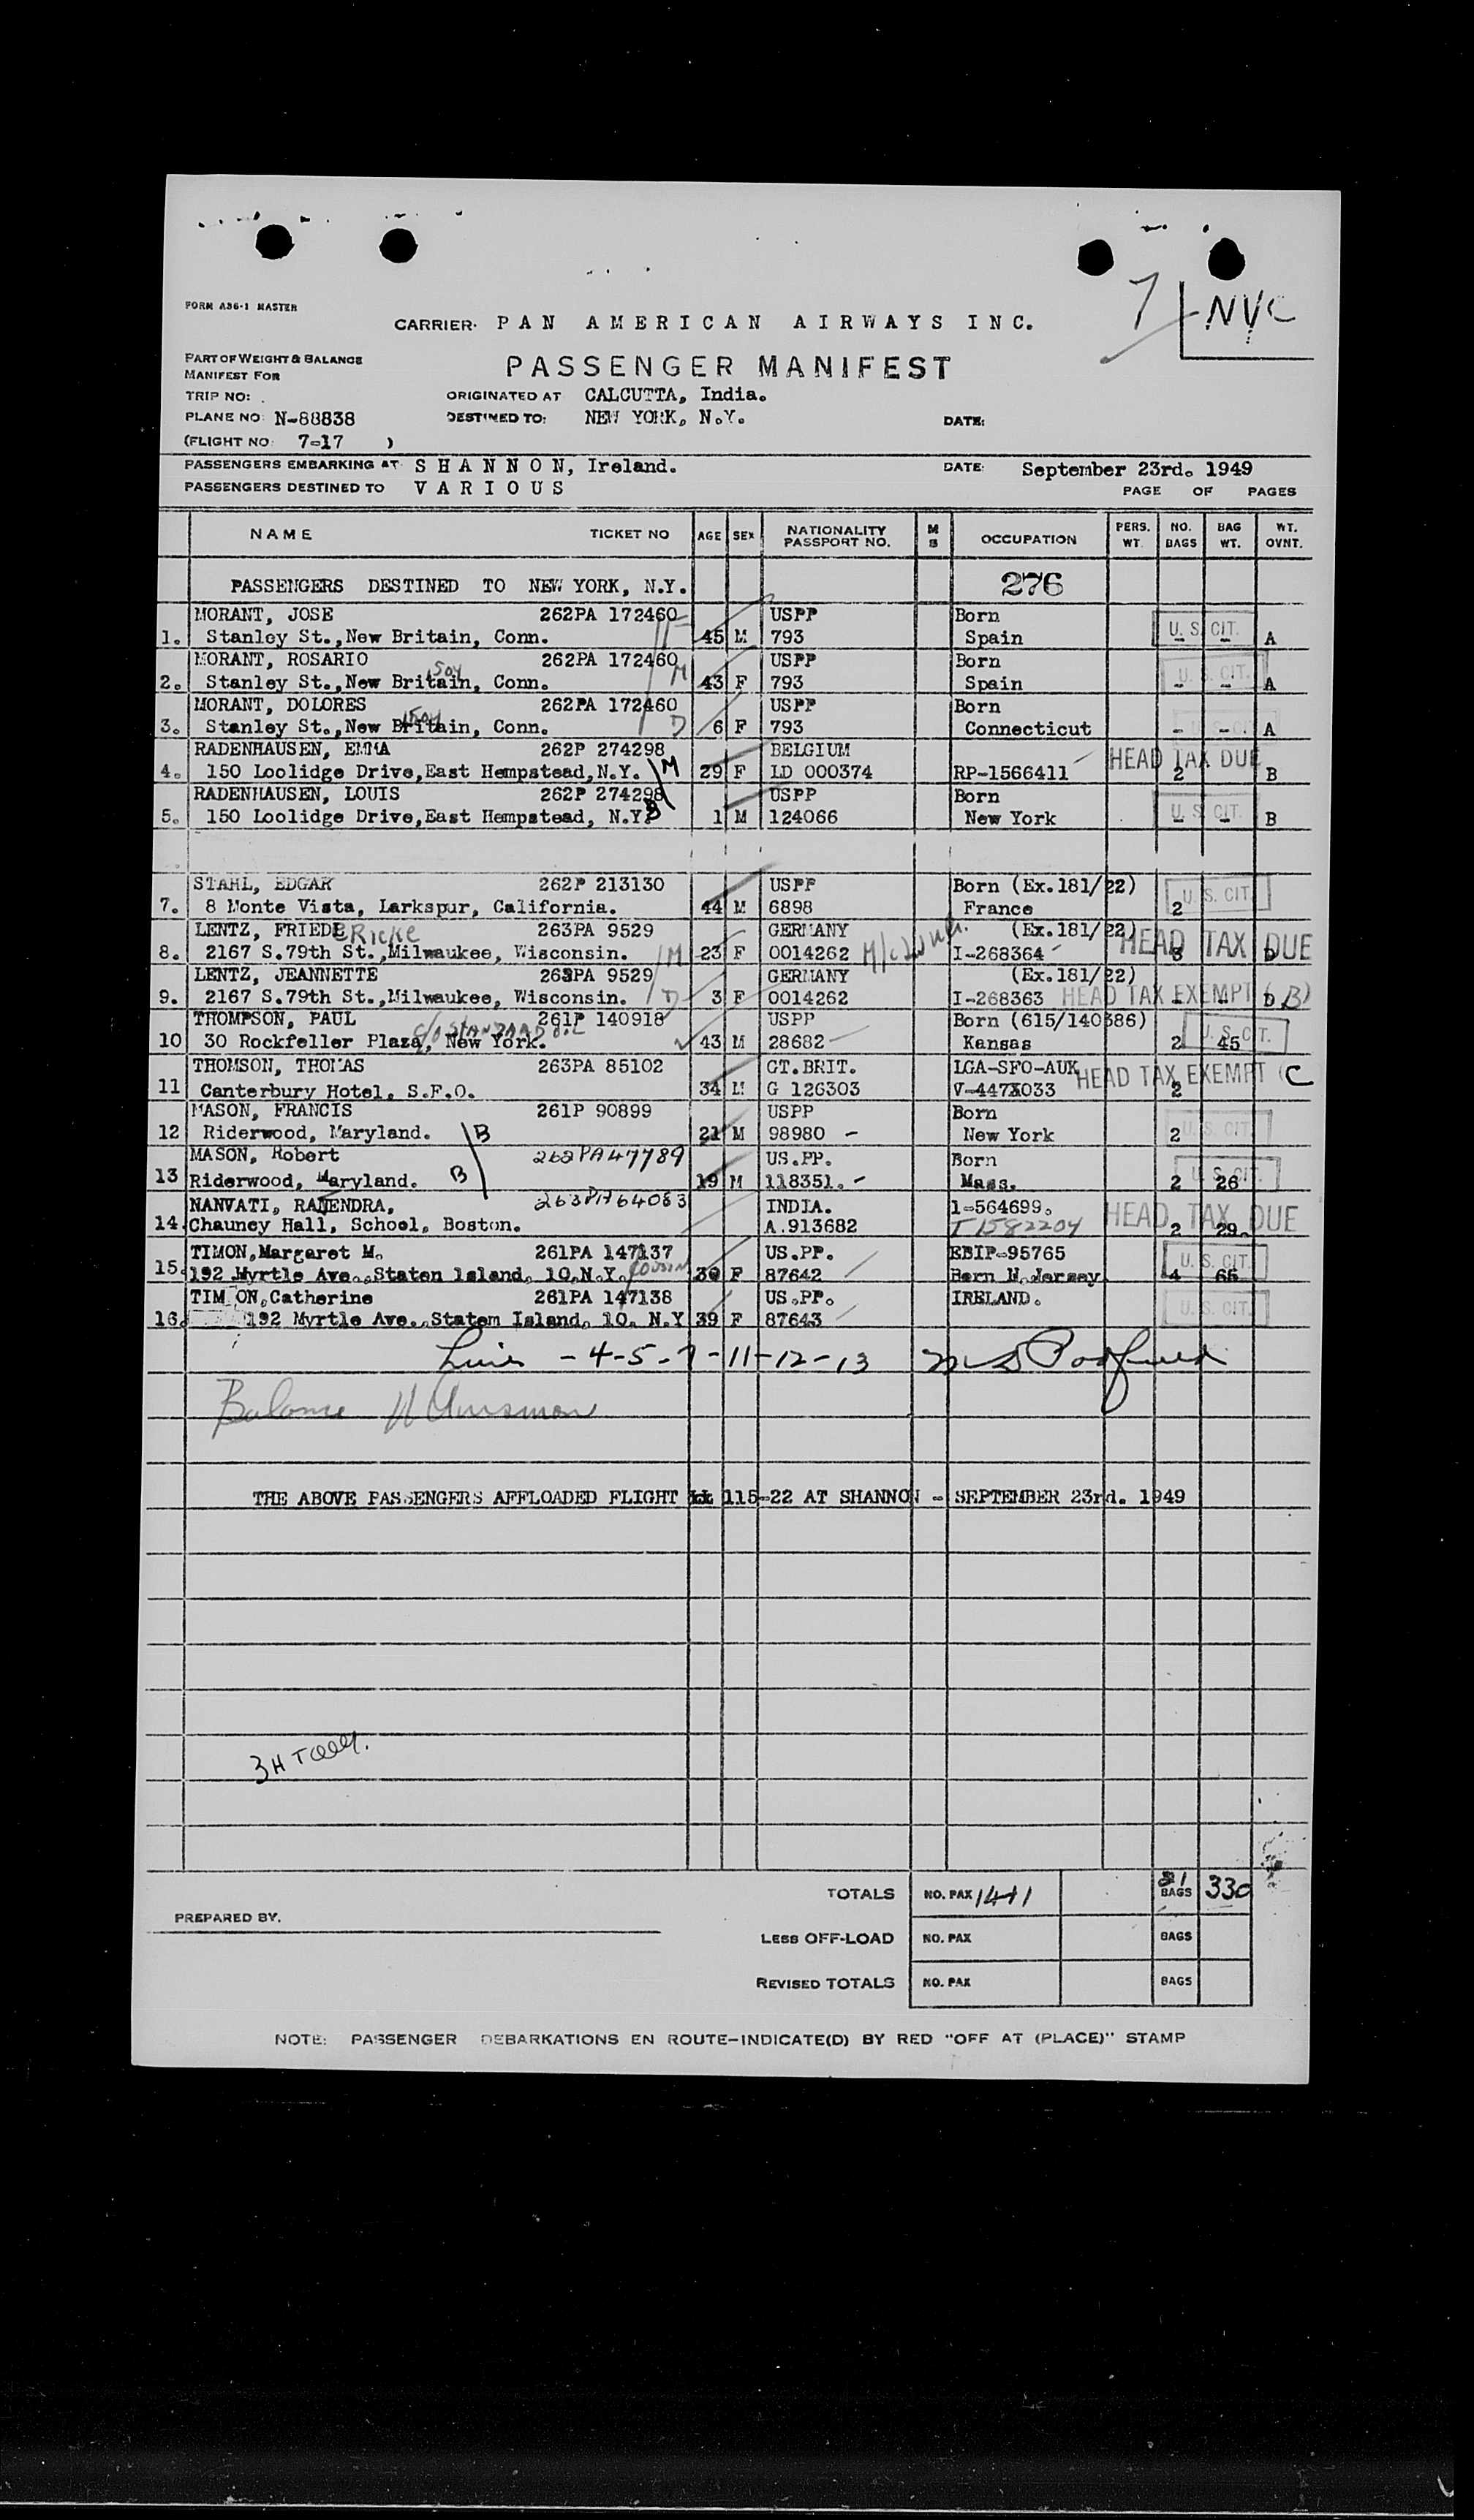 7 NYC
FORM A36-1 MASTER
CARRIER· PAN AMERICAN AIRWAYS INC.
PART OF WEIGHT & BALANCE
MANIFEST FOR
PASSENGER MANIFEST
TRIP NO:
ORIGINATED AT CALCUTTA, India.
PLANE NO: N-88838
DESTINED TO: NEW YORK, N.Y.
DATE:
(FLIGHT NO: 7-17 )
PASSENGERS EMBARKING AT: SHANNON, Ireland. DATE: September 23rd. 1949
PASSENGERS DESTINED TO VARIOUS
PAGE OF PAGES
NAME TICKET NO AGE SEX NATIONALITY PASSPORT NO. M S OCCUPATION PERS. WT. NO. BAGS BAG WT. WT. OVNT.
PASSENGERS DESTINED TO NEW YORK, N.Y. 276
MORANT, JOSE 262PA 172460 USPP Born
1. Stanley St.,New Britain, Conn. 45 M 793 Spain U. S. CIT. - - A
MORANT, ROSARIO 262PA 172460 M USPP Born
2. Stanley St.,New Britain, Conn. 43 F 793 Spain U. S. CIT. - - A
MORANT, DOLORES 262PA 172460 USPP Born
3. Stanley St.,New Britain, Conn. D 6 F 793 Connecticut U. S. CIT. - - A
RADENHAUSEN, EMMA 262P 274298 BELGIUM HEAD TAX DUE
4. 150 Loolidge Drive,East Hempstead,N.Y. M 29 F LD 000374 RP-1566411 2 B
RADENHAUSEN, LOUIS 262P 274298 USPP Born
5. 150 Loolidge Drive,East Hempstead, N.Y. 1 M 124066 New York U. S. CIT. - - B
STAHL, EDGAR 262P 213130 USPP Born (Ex.181/22)
7. 8 Monte Vista, Larkspur, California. 44 M 6898 France 2 U. S. CIT.
LENTZ, FRIEDERicke 263PA 9529 GERMANY (Ex.181/22) HEAD TAX DUE
8. 2167 S.79th St.,Milwaukee, Wisconsin. M 23 F 0014262 I-268364
LENTZ, JEANNETTE 263PA 9529 GERMANY (Ex.181/22)
9. 2167 S.79th St.,Milwaukee, Wisconsin. D 3 F 0014262 I-268363 HEAD TAX EXEMPT (B)
THOMPSON, PAUL 261P 140918 USPP Born (615/140386)
c/o STANDARD OIL
10 30 Rockfeller Plaza, New York. 43 M 28682 Kansas 2 45 U. S. CIT.
THOMSON, THOMAS 263PA 85102 GT.BRIT. LGA-SFO-AUK HEAD TAX EXEMPT (C
11 Canterbury Hotel, S.F.O. 34 M G 126303 V-447X033 2
MASON, FRANCIS 261P 90899 USPP Born
12 Riderwood, Maryland. B 21 M 98980 - New York 2 U. S. CIT.
MASON, Robert 262PA47789 US.PP. Born
13 Riderwood, Maryland. B 19 M 118351. - Mass. 2 26 U. S. CIT.
NANVATI, RAJENDRA, 263PA64083 INDIA. 1-564699. HEAD TAX DUE
14. Chauney Hall, School, Boston. A.913682 T1582204 2 29.
TIMON,Margaret M. 261PA 147137 US.PP. EBIP-95765
15. 192 Myrtle Ave.,Staten Island, 10,N.Y. COUSIN 30 F 87642 Born N.Jersey 4 65 U. S. CIT.
TIM ON,Catherine 261PA 147138 US.PP. IRELAND.
16. 192 Myrtle Ave.,Statem Island, 10. N.Y 39 F 87643 U. S. CIT.
- 4-5-7-11-12-13
Balance
THE ABOVE PASSENGERS AFFLOADED FLIGHT 115-22 AT SHANNON - SEPTEMBER 23rd. 1949
TOTALS NO. PAX BAGS 330
PREPARED BY.
LESS OFF-LOAD NO. PAX BAGS
REVISED TOTALS NO. PAX BAGS
NOTE: PASSENGER DEBARKATIONS EN ROUTE-INDICATE(D) BY RED "OFF AT (PLACE)" STAMP